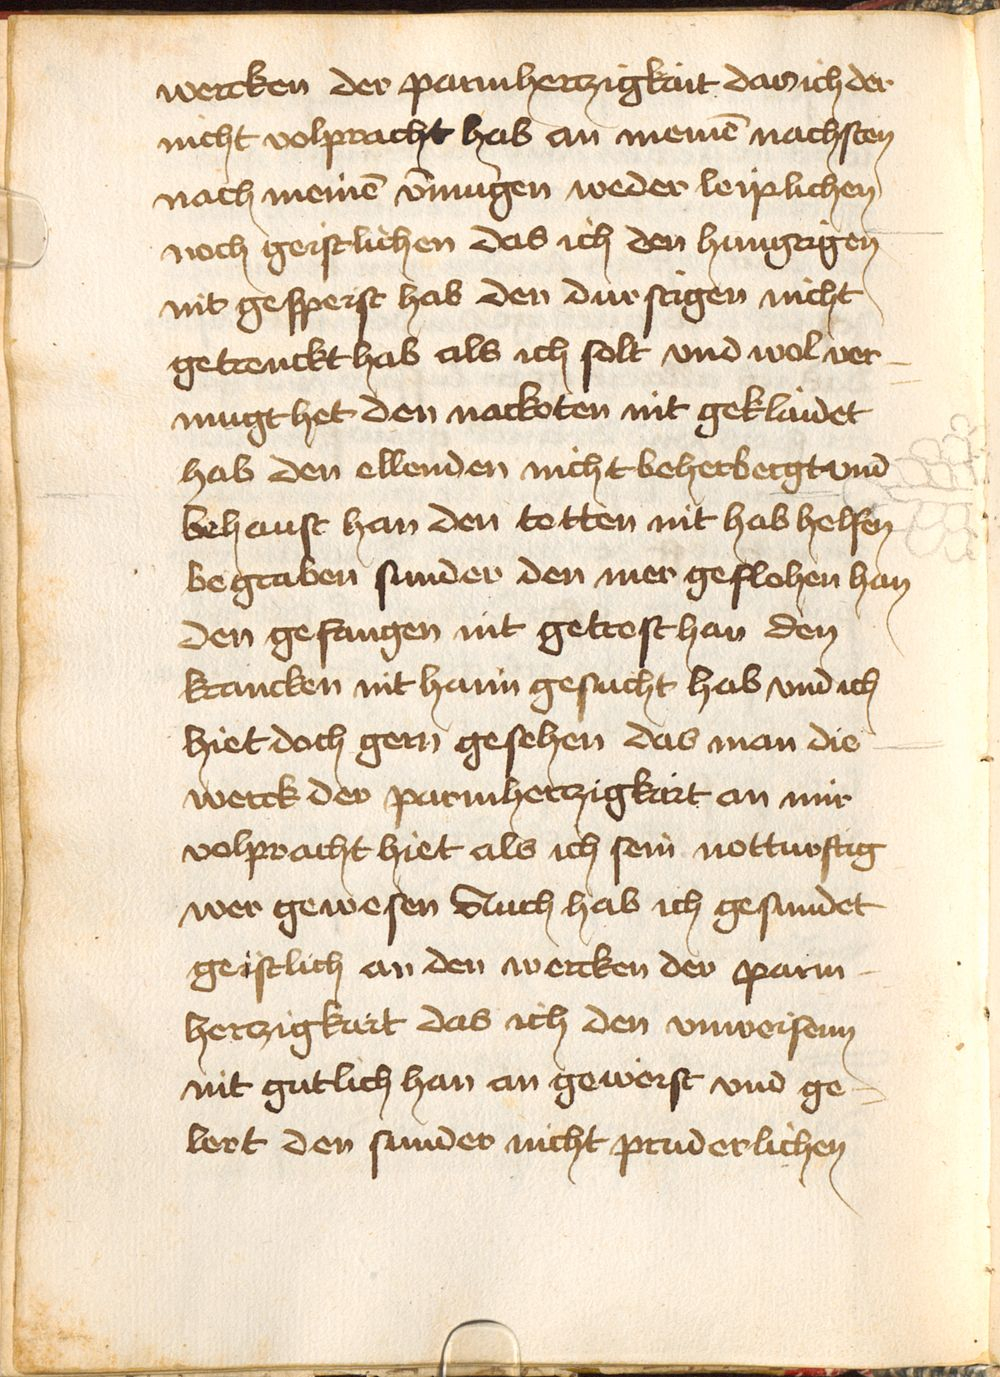 wercken der parmhertzigkait das ich der
nicht volpracht hab an meinē nachsten
nach meinē v̄mugen weder leiplichen
noch geistlichen das ich den hungrigen
nit gesspeist hab den durstigen nicht
getrenckt hab als ich solt vnd wol ver-
mugt het den nackoten nit geklaidet
hab den ellenden nicht beherbergt vnd
behaust han den totten nit hab helfen
begraben sunder den mer geflohen han
den gefangen nit getrost han den
krancken nit haim gesucht hab vnd ich
hiet doch gern gesehen das man die
werck der parmhertzigkait an mir
volpracht hiet als ich sein notturftig
wer gewesen Auch hab ich gesundet
geistlich an den wercken der parm-
hertzigkait das ich den vnweisenn
nit gutlich han an geweist vnd ge-
lert den sunder nicht pruderlichen